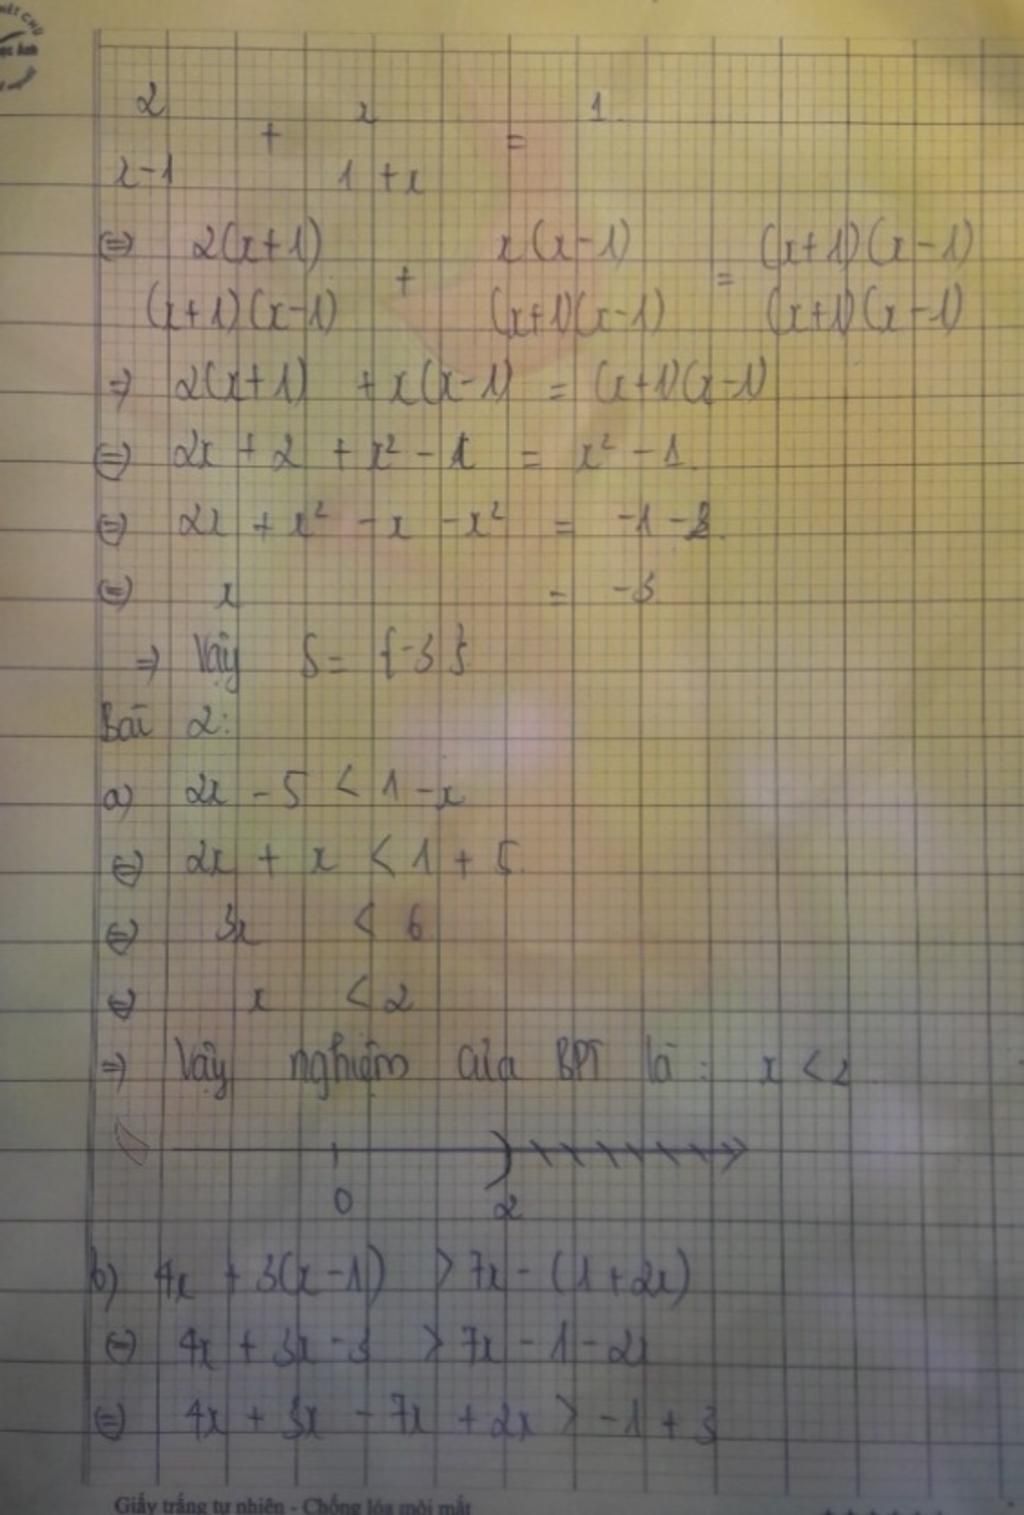 2 x 1
+ =
x-1 1 + x
⇔ 2(x+1) x(x-1) (x+1)(x-1)
+ =
(x+1)(x-1) (x+1)(x-1) (x+1)(x-1)
⇒ 2(x+1) + x(x-1) = (x+1)(x-1)
⇔ 2x + 2 + x² - x = x² - 1
⇔ 2x + x² - x - x² = -1 - 2
⇔ x = -3
⇒ Vậy S = {-3}
Bài 2:
a) 2x - 5 < 1 - x
⇔ 2x + x < 1 + 5
⇔ 3x < 6
⇔ x < 2
⇒ Vậy nghiệm của BPT là : x < 2
0 2
b) 4x + 3(x-1) > 7x - (1 + 2x)
⇔ 4x + 3x - 3 > 7x - 1 - 2x
⇔ 4x + 3x - 7x + 2x > -1 + 3
Giấy trắng tự nhiên - Chống lóa mỏi mắt